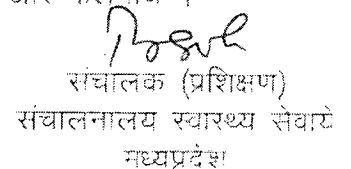 संचालक (प्रशिक्षण)
संचालनालय स्वास्थ्य सेवाये
मध्यप्रदेश